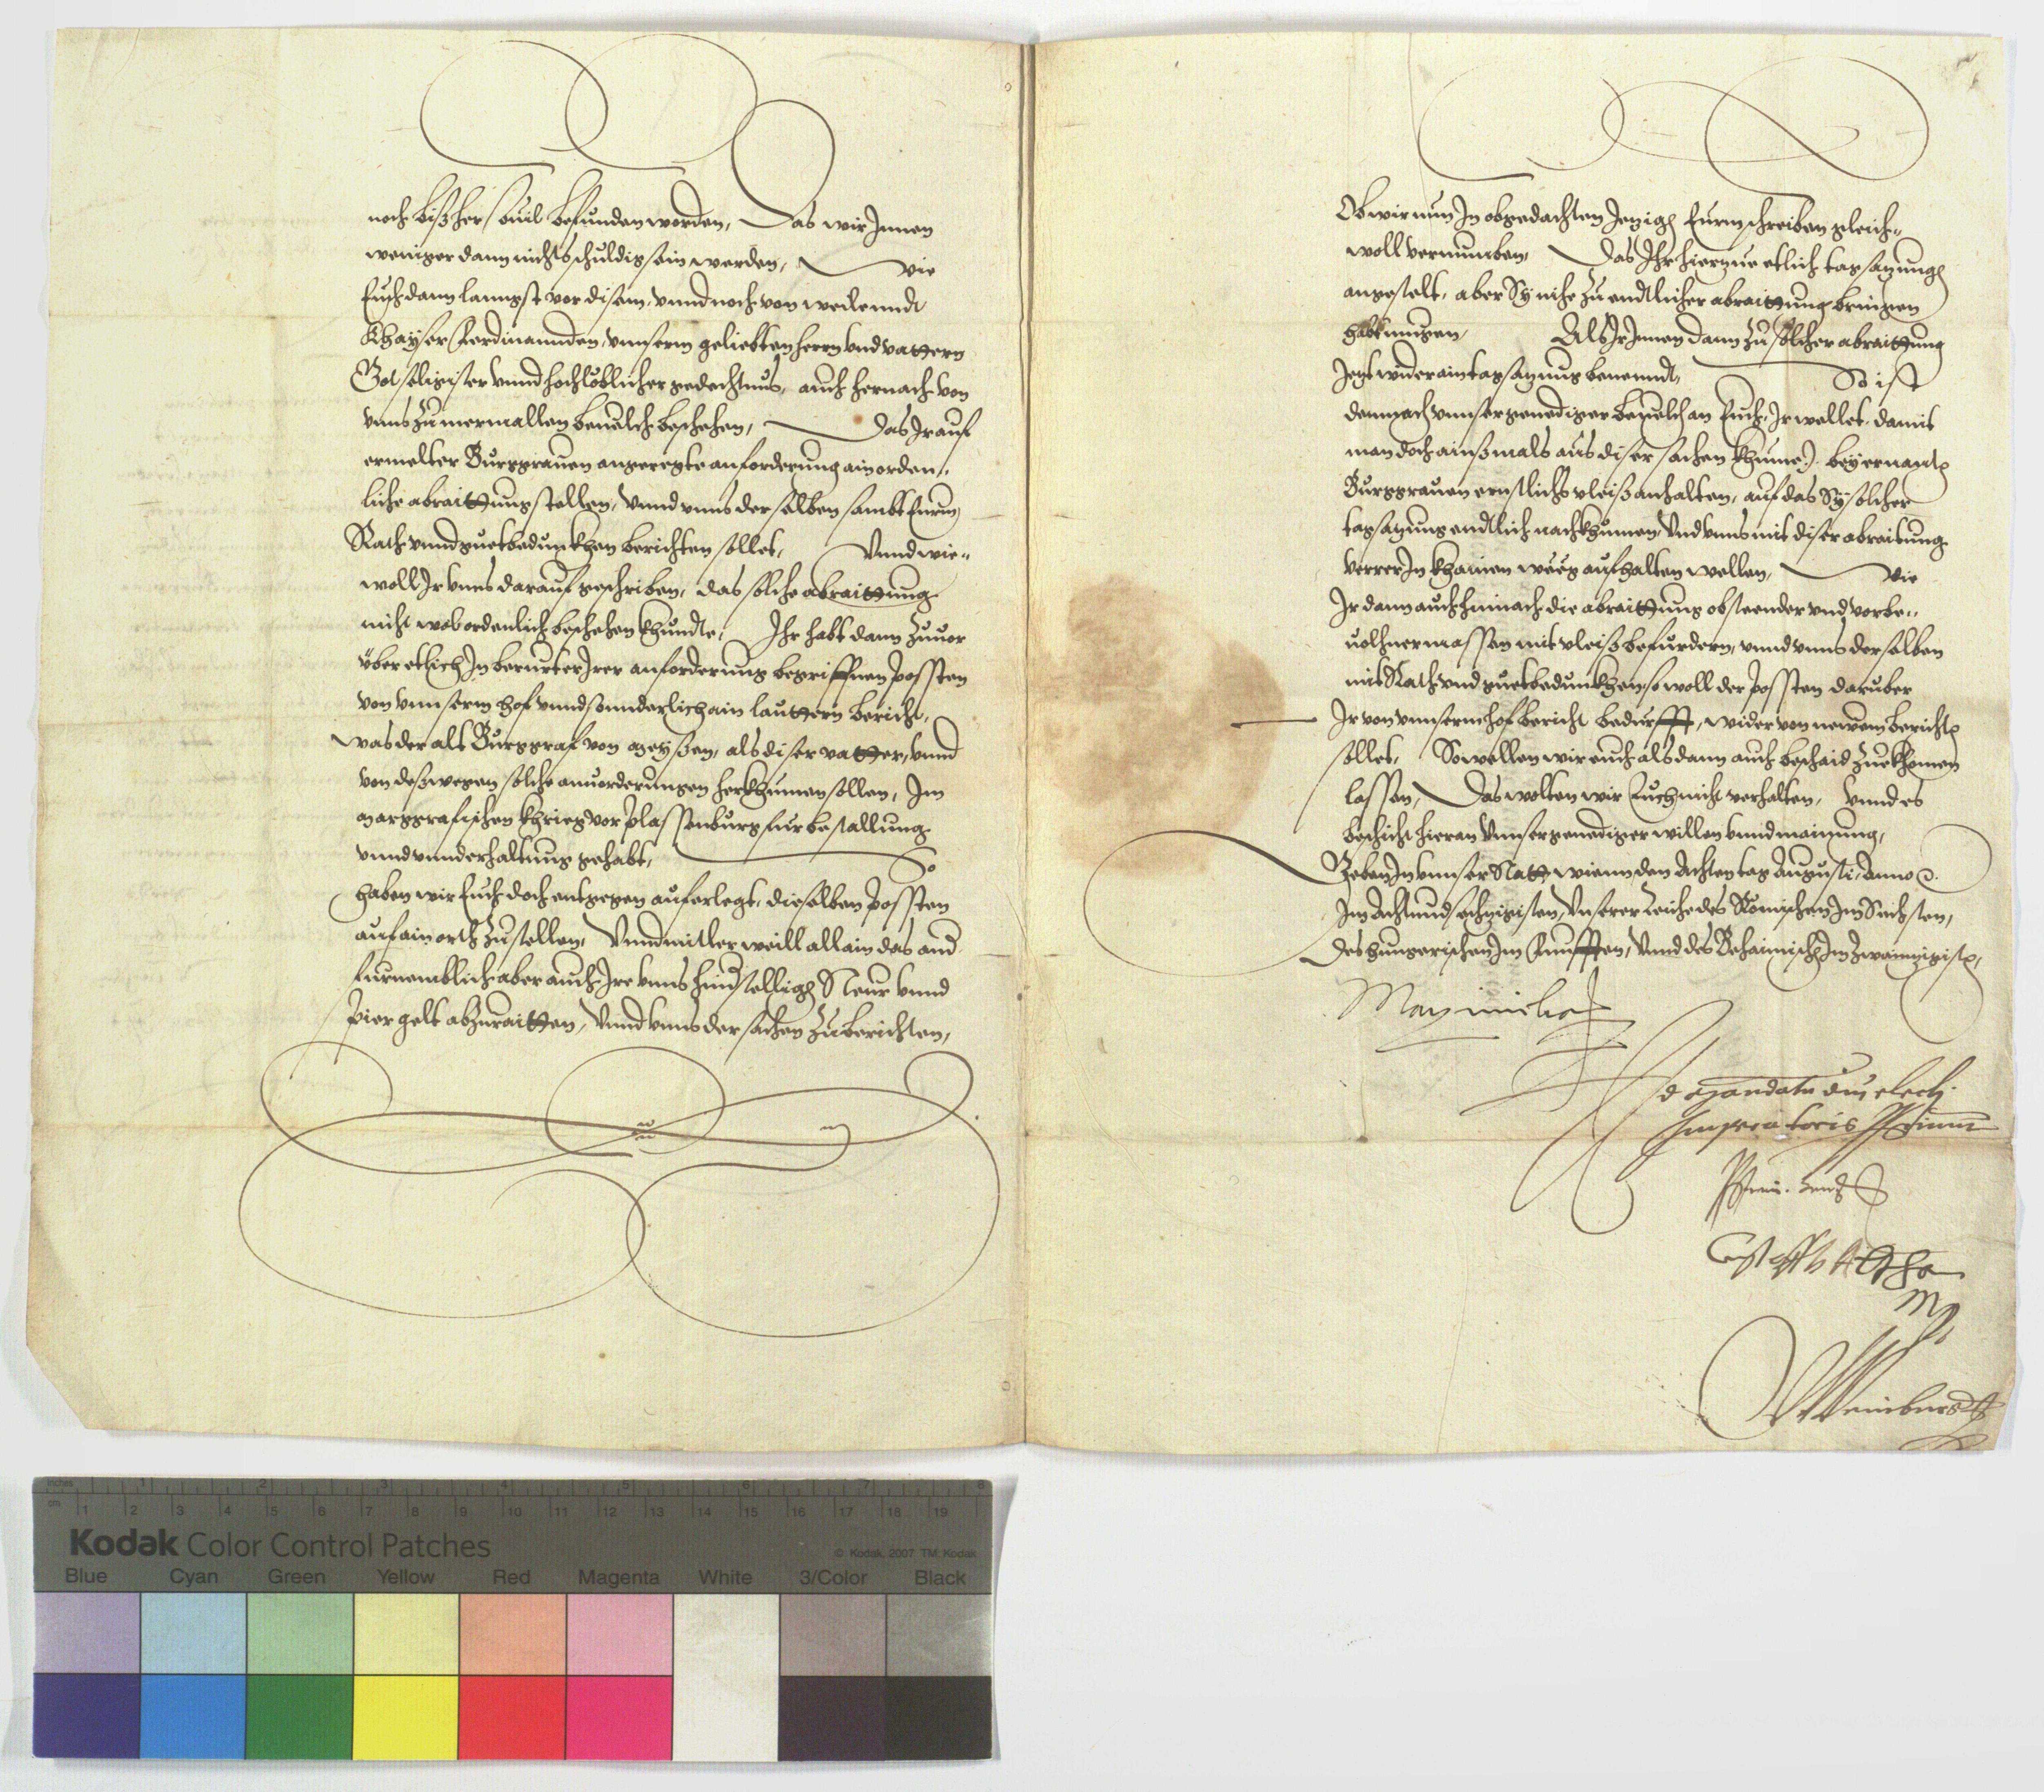 noch bißher souil befunden worden, Das wir Innen
weniger dann nichts schuldig sein werden, Wie
Euch dann lanngst vor disem, vnnd noch von weilenndt
Khayser Ferdinannden, vnnserm geliebten herrn vnd vattern
Gotseligister vnnd hochlöblicher gedechtnus, auch hernach von
vnns zu mermallen beuelch beschehen, Das Ir auf
ermelter Burggrauen angeregte anforderung ain orden,,
liche abraittung stellen, vnnd vnns derselben sambt Eurm
Rath vnnd guetbedunkhen berichten sollet, Vnnd wie,,
woll Ir vnns darauf geschriben, das solche abraittung
nicht wol ordenlich beschehen khundte, Ihr habt dann zuuor
über etlich In berurter Irer anforderung begriffnen possten
von vnnserm hof vnnd sonnderlich ain lauttern bericht,
was der alt Burggraf von Meyßen, als diser vatter, vnnd
von deßwegen solche anuorderungen herkhumen sollen, Im
Marggrafischen khrieg vor Plassenburg fur bestallung
vnnd vnnderhaltung gehabt, So
haben wir Euch doch entgegen auferlegt, dieselben possten
auf ain orth zustellen, Vnnd mitlerweill allain das and
furnemblich aber auch Ire vnns hindstellige Steur vnnd
Pier gelt abzuraitten, Vnnd vnns der sachen zuberichten,
Ob wir nun In obgedachten Jezigen Eurm schreiben gleich,,
woll vernumben, Das Ihr hierzue etlich tagsazungen
angestelt, aber Sy nihe zu endtlicher abraittung bringen
habt mugen, Als Ir Innen dann zu solcher abraittung
Jezt wider ain tagsazung benenndt, So ist
demnach vnnser genediger beuelch an Euch, Ir wellet, damit
man doch ainßmals aus diser sachen khume, bey ernanten
Burggrauen ernstlichs vleiß anhalten, auf das Sy solcher
tagsazung endtlich nachkhumen, Vnd vnns mit diser abraitung
verrer In khainen weeg aufhalten wellen, Wie
Ir dann auch hinnach die abraittung obsteender vnd vorbe,,
uolhnermassen mit vleiß befurdern, vnnd vnns derselben
mit Rath vnd guetbedunkhen sowoll der possten daruber
Ir von vnnserm hof bericht bedurfft, wider von newem berichten
sollet, So wellen wir euch alsdann auch beschaid zuekhomen
lassen, Das wolten wir Euch nicht verhalten, Vnnd es
beschicht hieran Vnnser genediger willen vnnd mainung,
Geben In vnnser Statt Wienn den Achten tag Augusti, Anno &c.
Im Achtundsechzigisten, Vnserer Reiche des Römischen Im Sechsten,
des Hungerischen Im Funfften, Vnnd des Behaimischen Im zwainzigisten,
Maximilian
Ad Mandatu dni electi
Imperatoris proprium
Weinburg